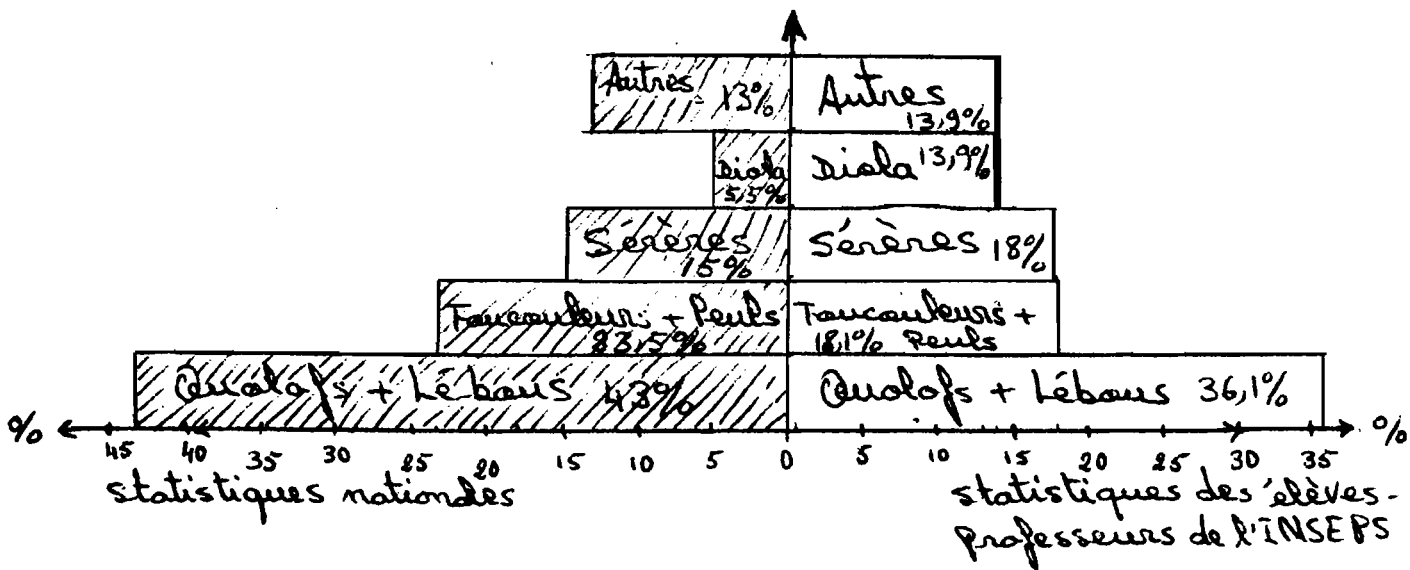 Autres 13%
Autres
13,9%
Diola
5,5%
Diola 13,9%
Sérères
15%
Sérères 18%
Toucouleurs + Peuls
23,5%
Toucouleurs +
18,1% Peuls
Ouolofs + Lébous 43%
Ouolofs + Lébous 36,1%
% 45 40 35 30 25 20 15 10 5 0 5 10 15 20 25 30 35 %
statistiques nationales
statistiques des élèves-
professeurs de l'INSEPS